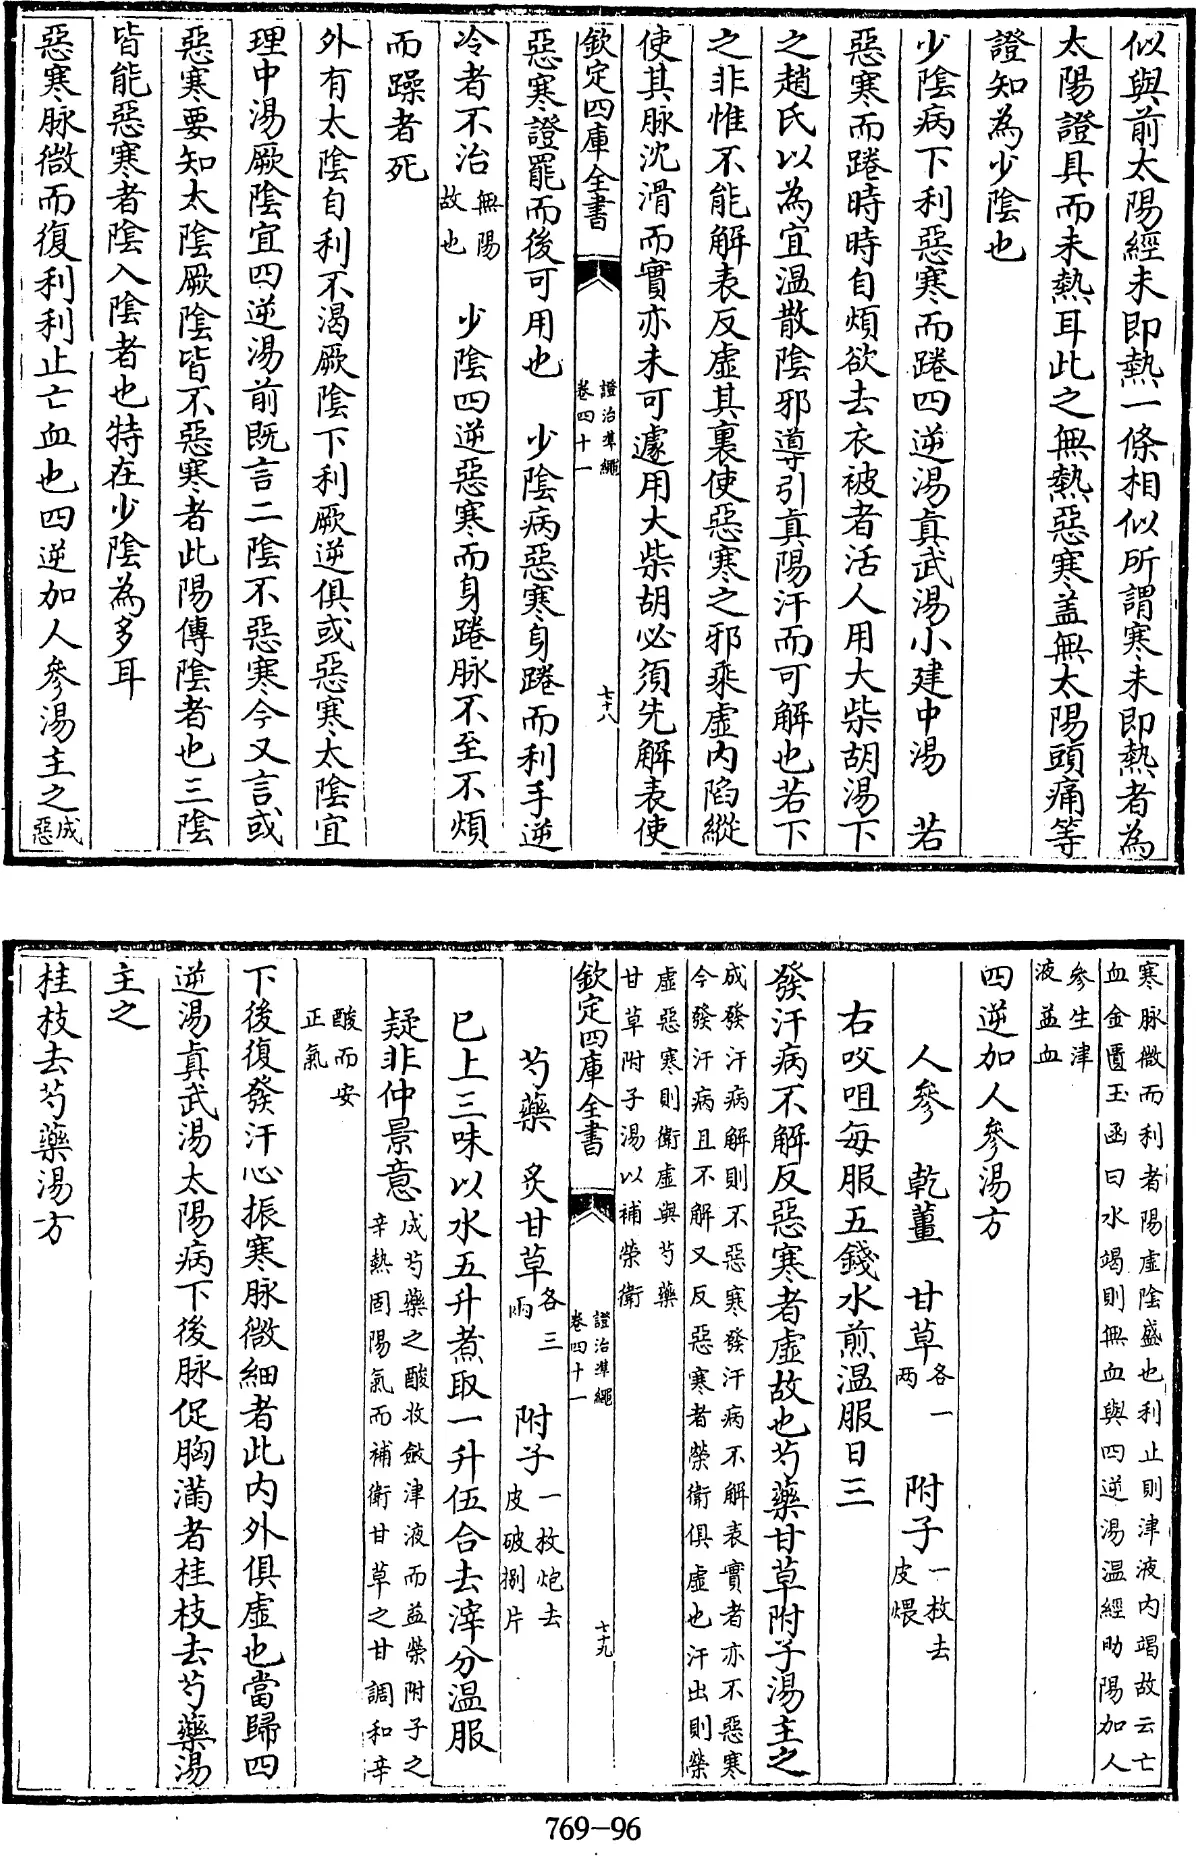 似與前太陽經未即熱一條相似所謂寒未即熱者為
太陽證具而未熱耳此之無熱惡寒蓋無太陽頭痛等
證知為少陰也
少陰病下利惡寒而踡四逆湯真武湯小建中湯　若
惡寒而踡時時自煩欲去衣被者活人用大柴胡湯下
之趙氏以為宜温散陰邪導引真陽汗而可解也若下
之非惟不能解表反虛其裏使惡寒之邪乘虛内陷縱
使其脉沈滑而實亦未可遽用大柴胡必須先解表使
欽定四庫全書
證治準繩
卷四十一
七十八
惡寒證罷而後可用也　少陰病惡寒身踡而利手逆
冷者不治無陽
故也　少陰四逆惡寒而身踡脉不至不煩
而躁者死
外有太陰自利不渴厥陰下利厥逆俱或惡寒太陰宜
理中湯厥陰宜四逆湯前既言二陰不惡寒今又言或
惡寒要知太陰厥陰皆不惡寒者此陽傳陰者也三陰
皆能惡寒者陰入陰者也特在少陰為多耳
惡寒脉微而復利利止亡血也四逆加人參湯主之成
惡
寒脉微而利者陽虛陰盛也利止則津液内竭故云亡
血金匱玉函曰水竭則無血與四逆湯温經助陽加人
參生津
液益血
四逆加人參湯方
人參　乾薑　甘草各一
兩　附子一枚去
皮煨
右㕮咀每服五錢水煎温服日三
發汗病不解反惡寒者虛故也芍藥甘草附子湯主之
成發汗病解則不惡寒發汗病不解表實者亦不惡寒
今發汗病且不解又反惡寒者榮衛俱虛也汗出則榮
虛惡寒則衛虛與芍藥
甘草附子湯以補榮衛
欽定四庫全書
證治準繩
卷四十一
七十九
芍藥　炙甘草各三
兩　附子一枚炮去
皮破捌片
已上三味以水五升煮取一升伍合去滓分温服
疑非仲景意成芍藥之酸收斂津液而益榮附子之
辛熱固陽氣而補衛甘草之甘調和辛
酸而安
正氣
下後復發汗心振寒脉微細者此内外俱虛也當歸四
逆湯真武湯太陽病下後脉促胸滿者桂枝去芍藥湯
主之
桂枝去芍藥湯方
769-96